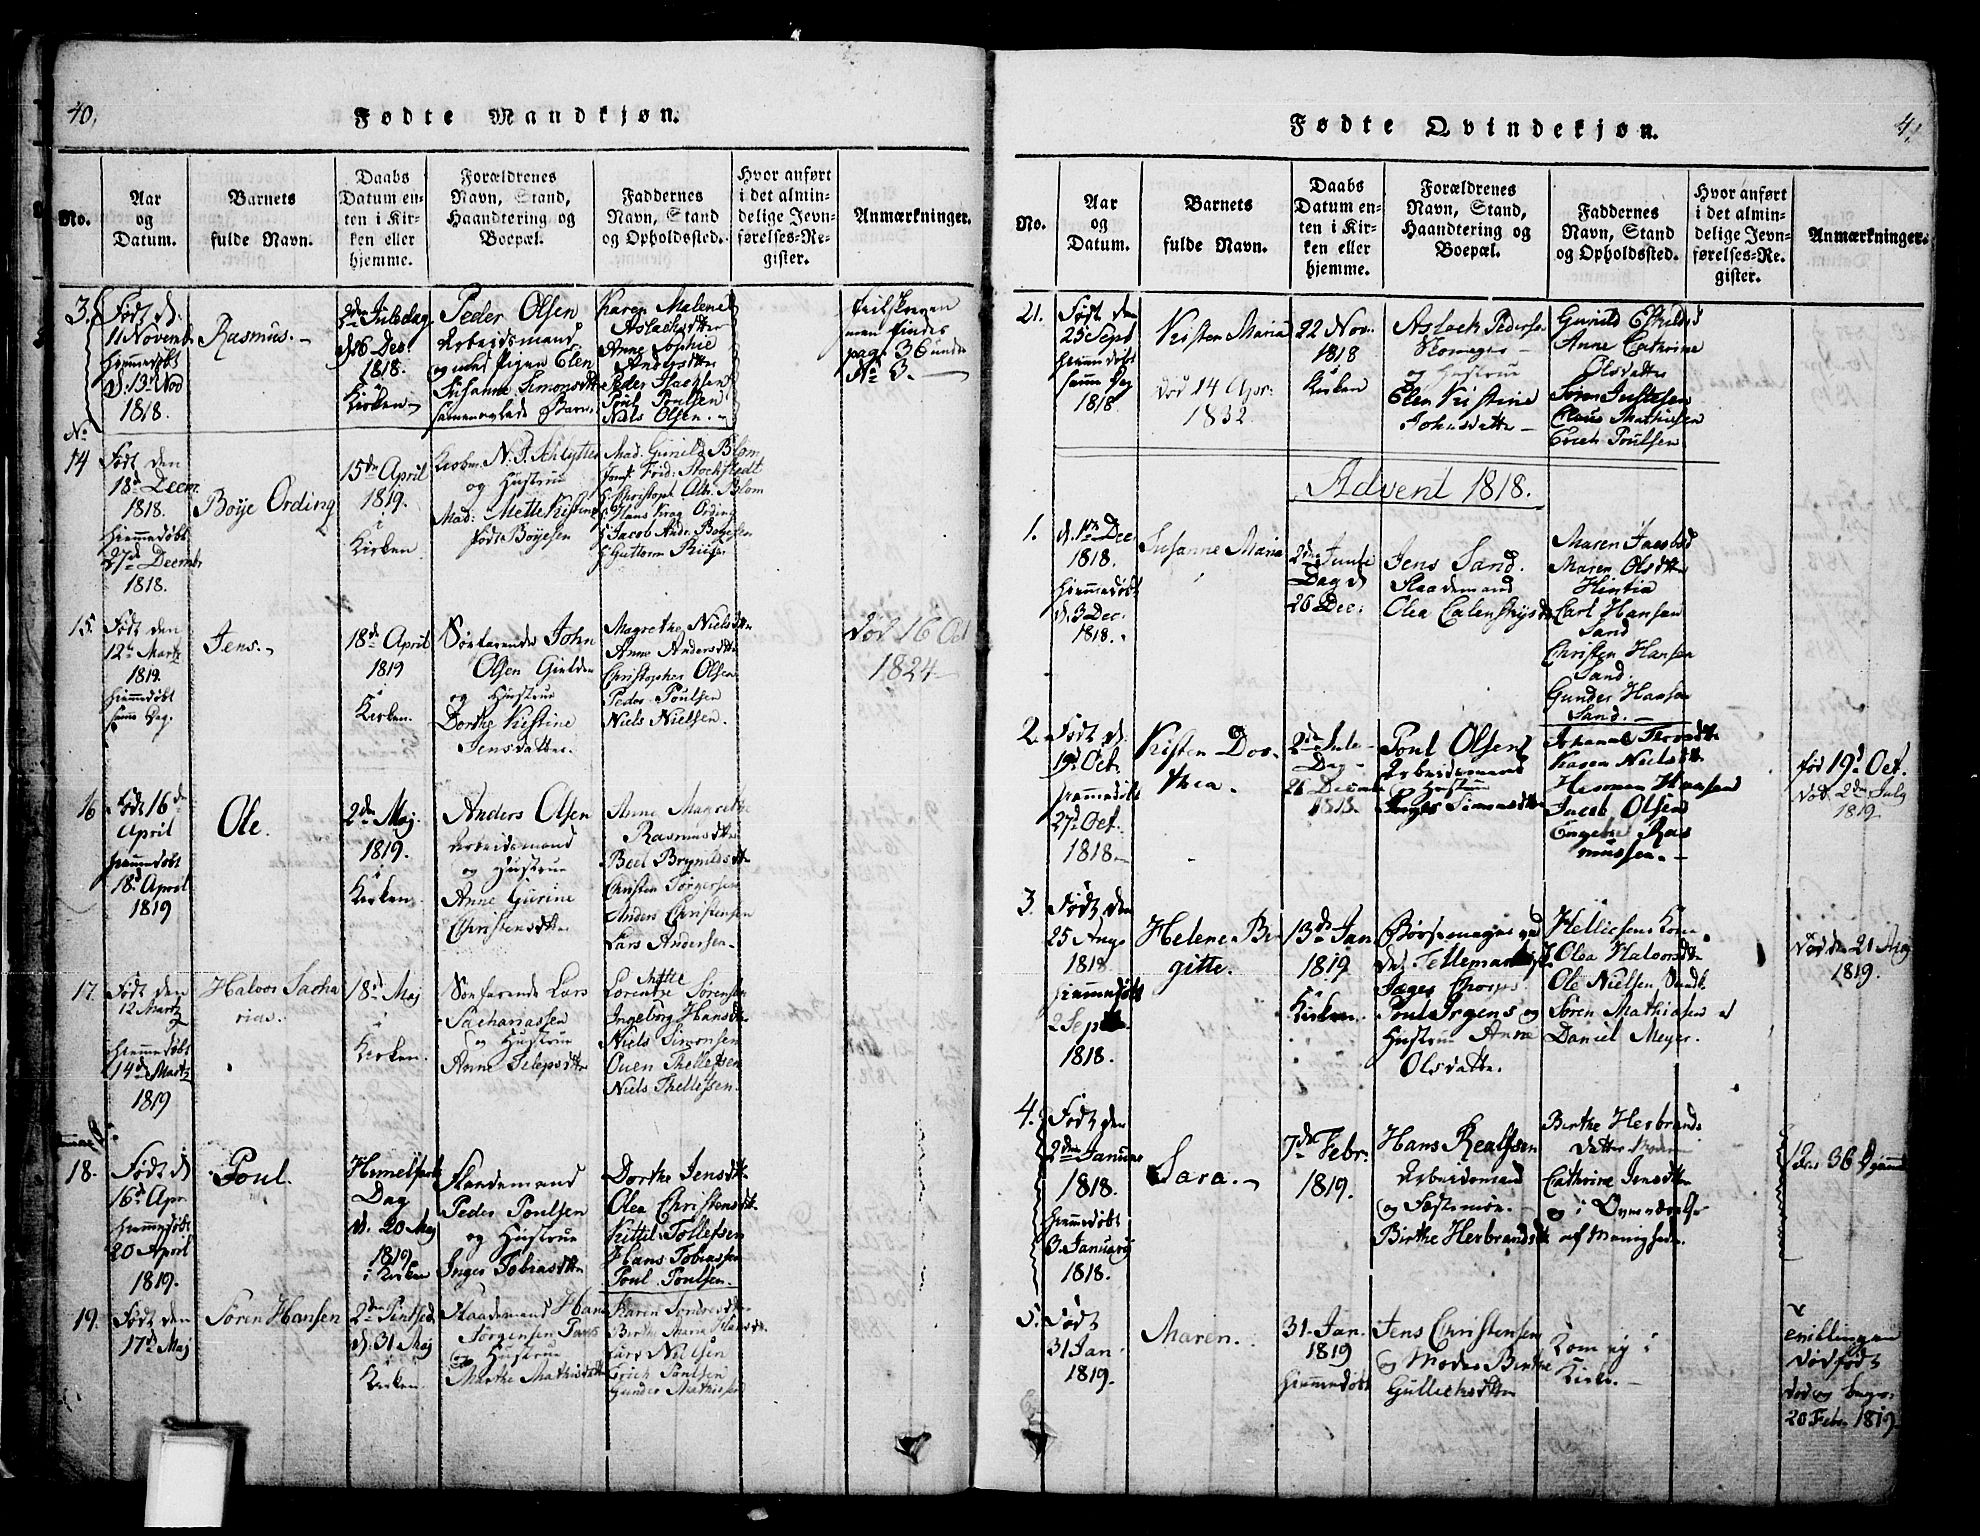 40.
Fødte Mandkjøn.
No.
Aar
og
Datum.
Barnets
fulde Navn.
Daabs
Datum en-
ten i Kir-
ken eller
hjemme.
Forældrenes
Navn, Stand,
Haandtering og
Boepæl.
Faddernes
Navn, Stand
og Opholdssted.
Hvor anført
i det almin-
delige Jevn-
førelses-Re-
gister.
Anmærkninger.
3.
Født d.
11 Novemb.
hjemmedøbt
d. 13 Nov
1818.
Rasmus.
2den Juledag
d. 26 Dec.
1818.
Kirken
Peder Olsen
Arbeidsmand
og Pigen Elen
Susanne Simonsdtr
sammenavlede Barn
Karen Malene
Aslachsdtr
Anne Sophie
Andersdtr
Peder Isachsen
Poul Poulsen
Niels Olsen.
feilskreven
men findes
pag. 36 under
No 3.
No
14
Født den
18d Decem.
1818.
hjemmedøbt
27d Decemb
1818.
Boye Ording
15de April
1819.
i
Kirken
Kiøbm. N. J. Schlytter
og Hustrue
Mad: Mette Kistine
født Boyesen
Mad. Gunild Blom
Jomf. Frid: Stockfledt
Hr Christoph Alb. Blom
Hans Krag Ording
Hr Jacob And. Boyesen
Hr Guttorm Riise
15.
Født den
12te Martz
1819.
hjemmedøbt
samme Dag.
Jens.
18de April
1819
i
Kirken.
Søefarende John
Olsen Gielden
og Hustrue
Dorthe Kistine
Jensdatter.
Magrethe Nielsdtr
Anne Andersdtr
Christopher Olsen
Peder Poulsen
Niels Nielsen.
død 16 Oct
1824
16
Født 16de
April
hjemmedøbt
18d April
1819
Ole.
2den Maj.
1819.
i
Kirken.
Anders Olsen
Arbeidsmand
og Hustrue
Anne Gurine
Christensdtr
Anne Magrethe
Rasmusdtr
Beel Brynildsdtr
Christen Torgersen
Anders Christensen
Lars Andersen.
17.
Født den
12 Martz
hjemmedøbt
14d Martz
1819
Halvor Sacha
rias.
18d Maj
i
Kirken.
Søefarende Lars
Sachariassen
og Hustrue
Anne Jelepsdtr
Mette
Lorentze Sørensen
Ingeborg Hansdtr
Niels Simonsen
Ouen Thellefsen
Niels Thellefsen.
18.
Født d
16d Apr
hjemmedøbt
20 April
1819.
Poul.
Himmelfarts
Dag
d. 20 Maj
1819
i Kirken
Flaademand
Peder Poulsen
og Hustrue
Inger Tobiasdtr
Dorthe Jensdtr
Olea Christensdtr
Kittil Tollefsen
Hans Tobiassen
Poul Poulsen.
19.
Født den
17d Maj
Søren Hansen
2den Pintsed
d. 31 Maj
i
Kirken
Flaademand Hans
Jørgensen
og Hustrue
Marthe Mathisdatter
Karen Tondresdtr
Birthe Marie Hansdtr.
Lars Nielsen
Erich Poulsen
Gunder Mathisen
41
Fødte Qvindekjøn.
No.
Aar
og
Datum.
Barnets
fulde Navn.
Daabs
Datum en-
ten i Kir-
ken eller
hjemme.
Forældrenes
Navn, Stand,
Haandtering og
Boepæl.
Faddernes
Navn, Stand
og Opholdssted.
Hvor anført
i det almin-
delige Jevn-
førelses-Re-
gister.
Anmærkninger.
21.
Født den
25 Sept
hjemmedøbt
samme Dag
1818
Kisten Maria
død 14 Apr:
1832.
22 Nov.
1818
i
Kirken
Aslach Peders
og Hustrue
Elen Kistine
Johnsdatter
Gunild Eskildsd
Anne Cathrine
Olsdatter
Søren Justesen
Claus Mathiesen
Erich Poulsen
Advent 1818.
1.
d. 1te Dec.
1818.
hjemmedøbt
d. 3 Dec.
1818.
Susanne Maria
2den Juule
Dag d
26 Dec:
Jens Sand.
Flaademand
Olea Calenskysdtr
Maren Jacobsd
Maren Olsdtr
Hintia
Carl Hansen
Sand
Christen Hansen
Sand.
Gunder Hansen
Sand.
2.
Født d.
19d Oct.
hjemmedøbt
27d Oct.
1818.
Kisten Doro-
thea.
2den Jule-
Dag
26 Decemb
1818.
Poul Olsen
Arbeidsmand
og Hustrue
Inger Simonsdtr
Johanne
Karen Nielsdtr
Herman Hansen
Jacob Olsen
Engebr Ras
mussen.
fød 19d Oct.
død 2den July
1819.
3.
Født den
25 Aug
1818
hjemmedøbt
2 Septb
1818.
Helene Bir
gitte.
13de Jan
1819
i
Kirken
det Tellemarkiske
Jæger Chorps
Poul Irgens og
Hustrue Anne
Olsdatter.
Helliesens Kone
Olea Halvorsdtr
Ole Nielsen
Søren Mathisen
Daniel Meyer.
død den 21 Maj
1819.
4.
Født den
2den Januar
1818.
hjemmedøbt
3 January
1818.
Sara.
7de Febr.
1819.
Hans Realfsen
Arbeidsmand
og Festemøe
Birthe Herbrandsdtr
Birthe Herbrands
datter
Cathrine Jensdtr
og i Overværelse
af Menigheden.
5.
Født
31 Jan.
1819.
Maren.
31 Jan.
1819
hjemmedøbt
Jens Christensen
og Moder Birthe
Gullichsdtr
Kom ej i
Kirke.
tvillingen
dødfødt
død og begr.
20 Febr 1819